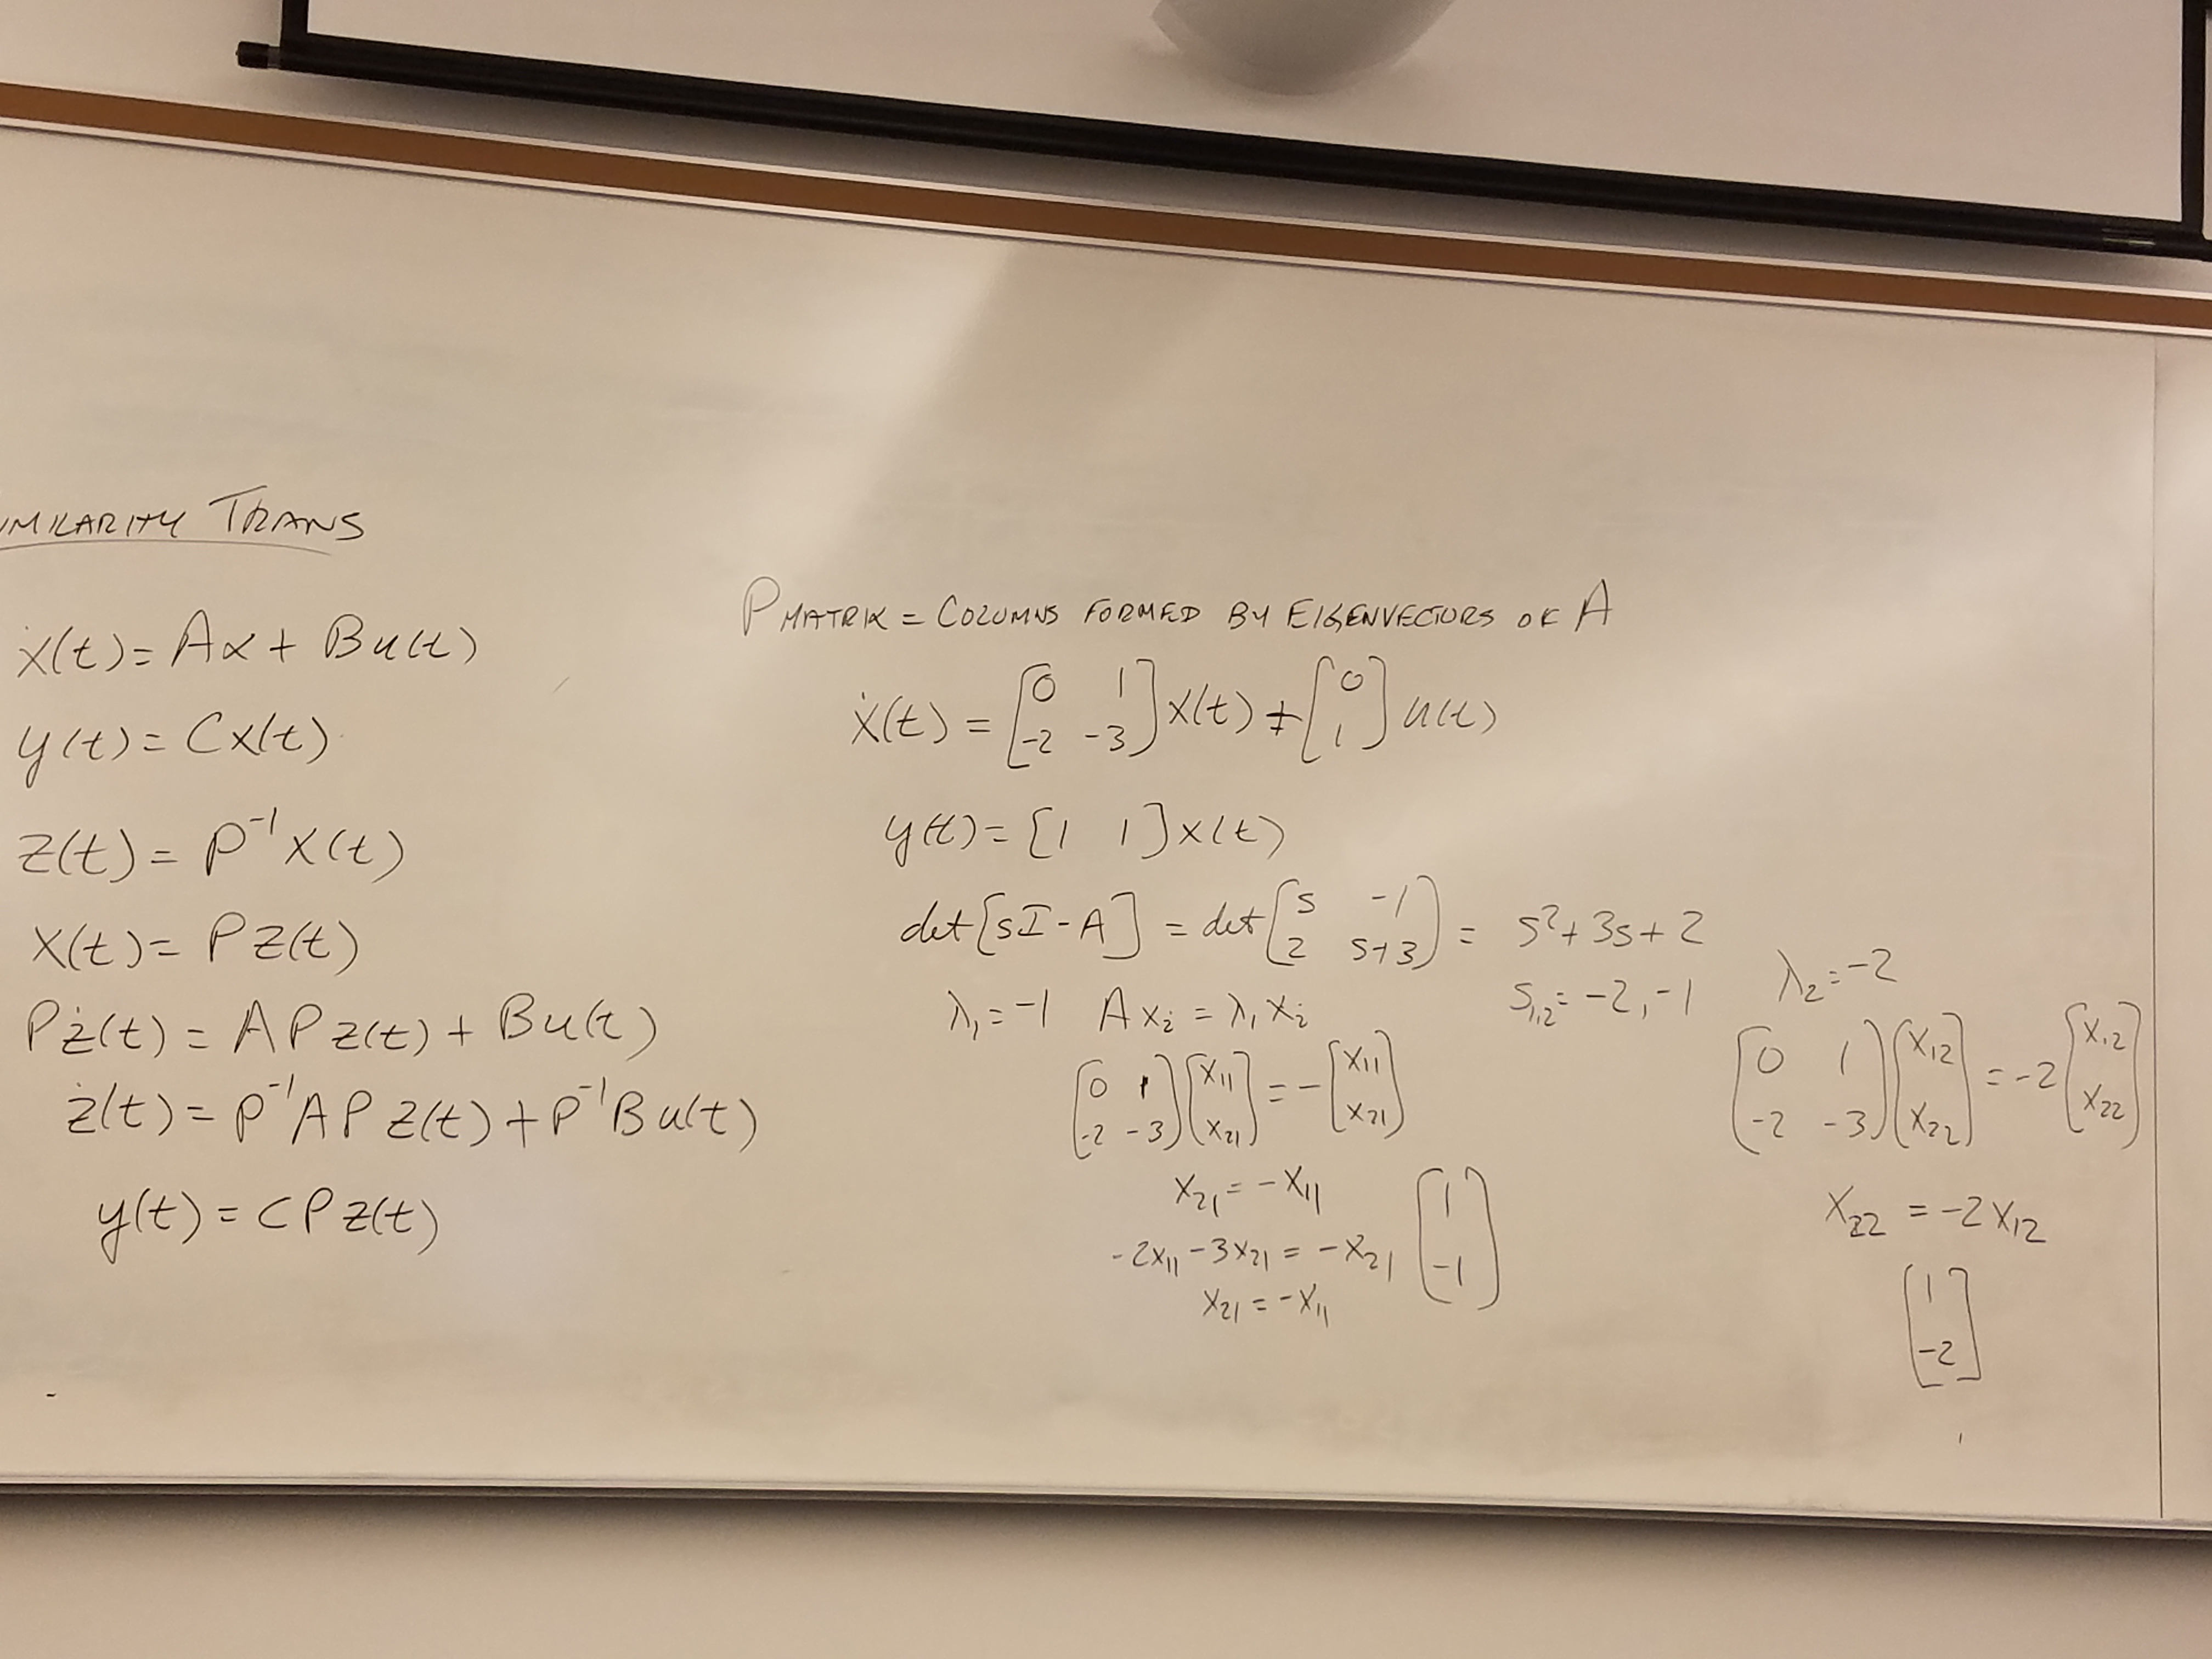 IMILARITY TRANS
ẋ(t) = Ax + Bu(t)
y(t) = Cx(t)
z(t) = P⁻¹x(t)
x(t) = Pz(t)
Pż(t) = APz(t) + Bu(t)
ż(t) = P⁻¹AP z(t) + P⁻¹Bu(t)
y(t) = CPz(t)
P MATRIX = COLUMNS FORMED BY EIGENVECTORS OF A
ẋ(t) = [0 1; -2 -3] x(t) + [0; 1] u(t)
y(t) = [1 1] x(t)
det[sI - A] = det [s -1; 2 s+3] = s² + 3s + 2
s₁,₂ = -2, -1
λ₁ = -1 Axᵢ = λ₁xᵢ
[0 1; -2 -3] [x₁₁; x₂₁] = -[x₁₁; x₂₁]
x₂₁ = -x₁₁
-2x₁₁ - 3x₂₁ = -x₂₁
x₂₁ = -x₁₁
[1; -1]
λ₂ = -2
[0 1; -2 -3] [x₁₂; x₂₂] = -2 [x₁₂; x₂₂]
x₂₂ = -2x₁₂
[1; -2]